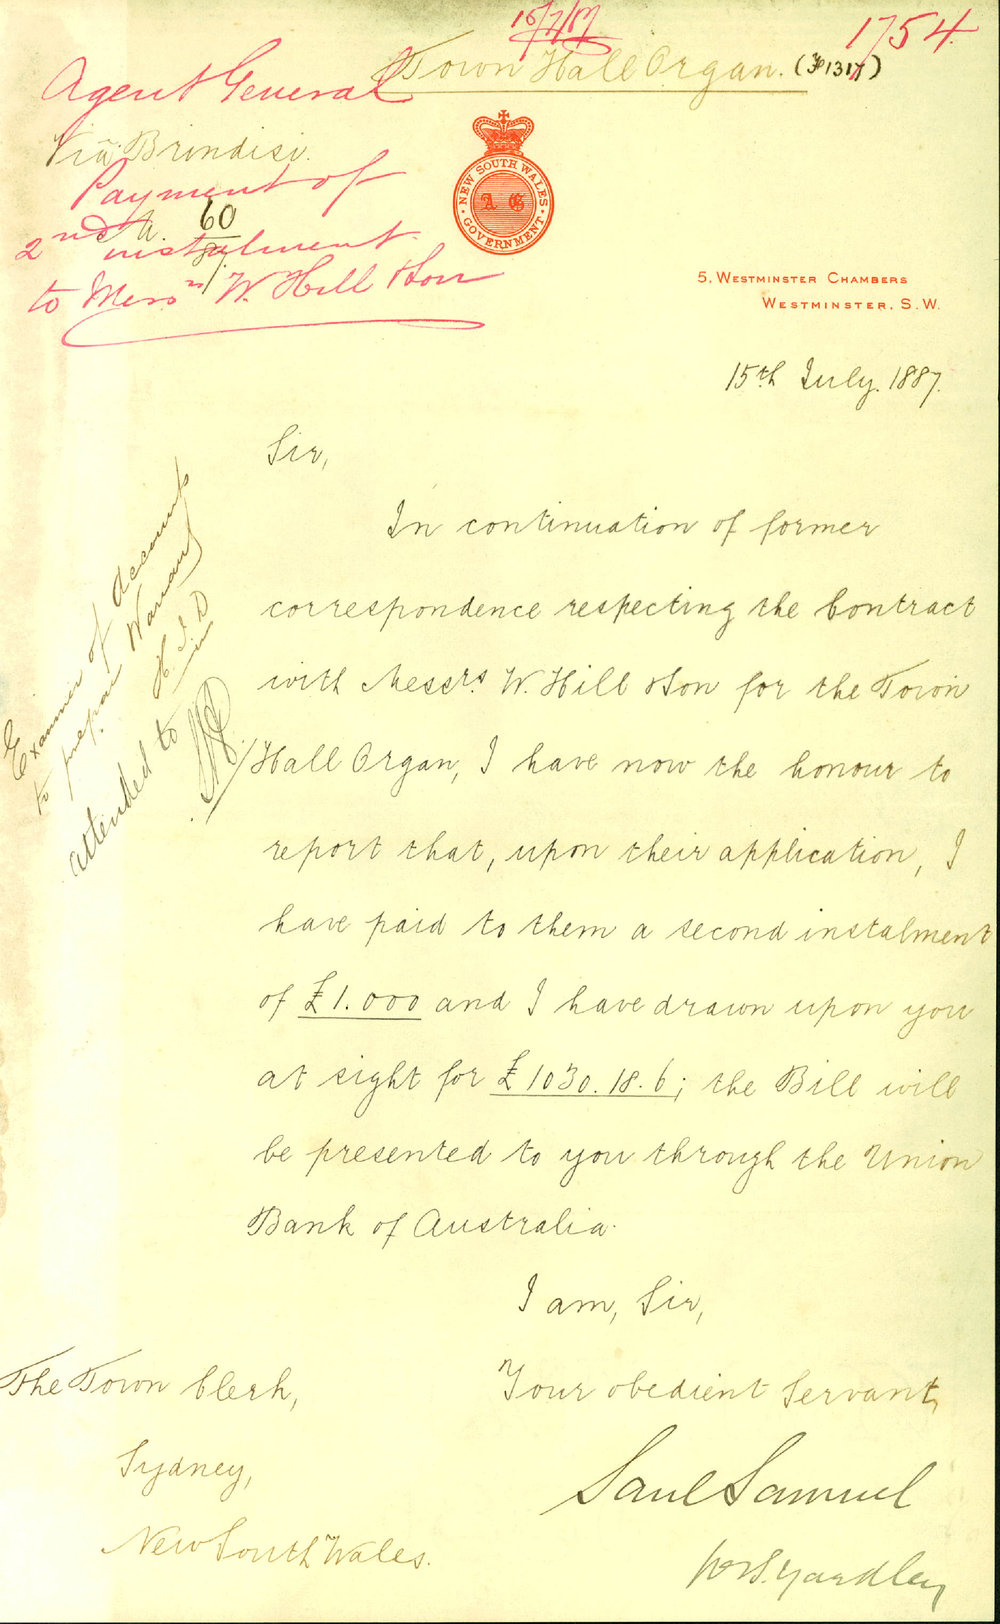 15/7/87
1754
Town Hall Organ.
Agent General
Via Brindisi.
Payment of
2nd instalment
to Messrs W. Hill & Son
A. 60
NEW SOUTH WALES
A G
GOVERNMENT
5, WESTMINSTER CHAMBERS
WESTMINSTER, S.W.
15th July. 1887.
Sir,
In continuation of former
correspondence respecting the Contract
with Messrs. W. Hill & Son for the Town
Hall Organ, I have now the honour to
report that, upon their application, I
have paid to them a second instalment
of £1.000 and I have drawn upon you
at sight for £1030.18.6; the Bill will
be presented to you through the Union
Bank of Australia.
I am, Sir,
Your obedient Servant,
Saul Samuel
The Town Clerk,
Sydney,
New South Wales.
Examiner of Accounts
to prepare Warrant
attended to